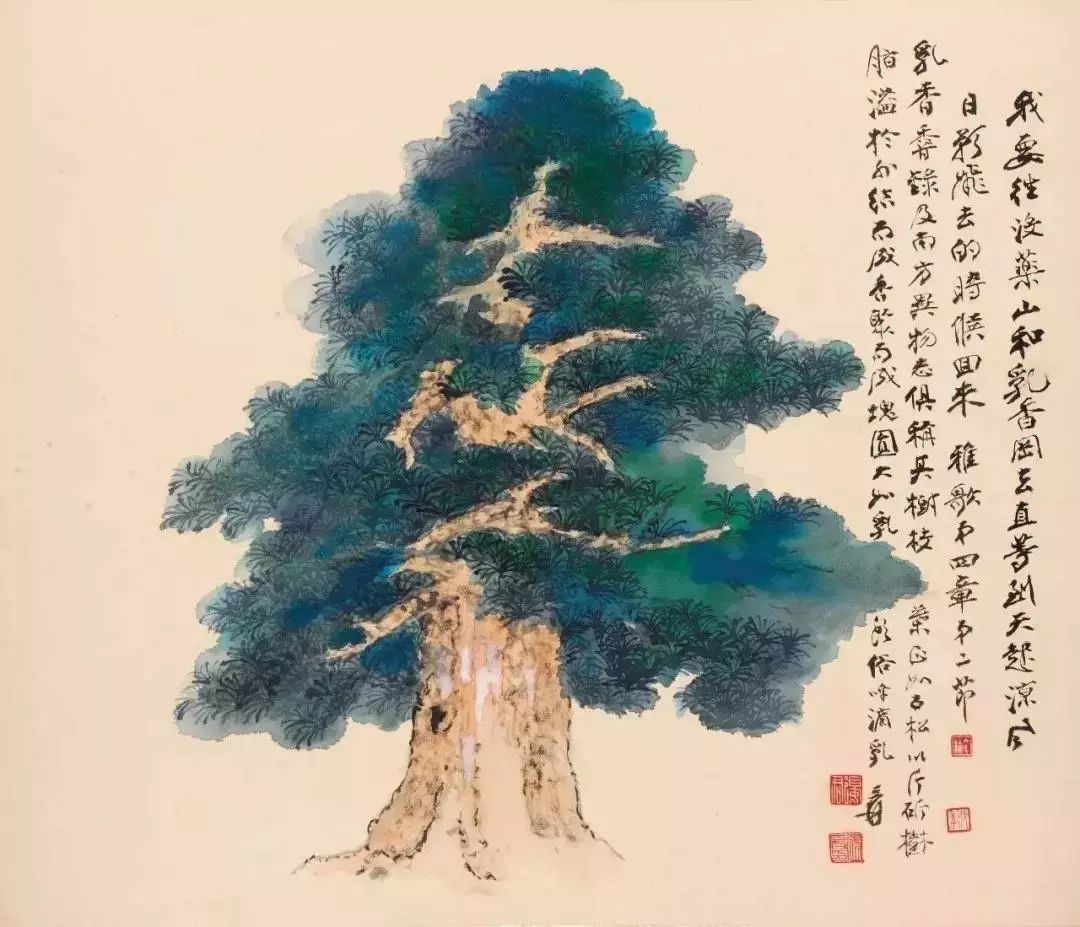 我要往没藥山和乳香岡去直等到天起涼風
日影飛去的時候回來 雅歌弟四章弟二節
乳香香錄及南方異物志俱稱其樹枝葉正如古松以斤斫樹
脂溢於外結而成香聚而成塊圓大如乳 俗呼滴乳 爰